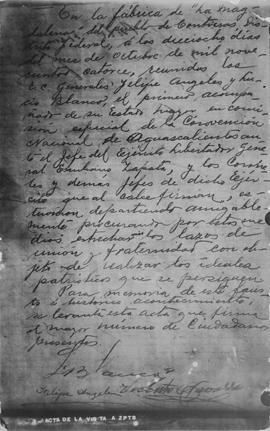 En la fábrica de "La mag
dalena", del Pueblo de Contreras, Dis
trito Federal, a los dieciocho días
del mes de Octubre de mil nove
cientos catorce, reunidos los
C.C. Generales Felipe Angeles y Lu
cio Blanco, el primero acompa
ñado de su Estado Mayor en comi
sión especial de la Convención
Nacional de Aguascalientes an
te el Jefe del Ejército Libertador Gene
ral Emiliano Zapata, y los
y demas Jefes de dicho Ejér
cito que al calce firman, es
tuvieron departiendo amigable
mente procurando por estos
dios estrechar los lazos de
unión y fraternidad con ob
jeto de realizar los ideales
patrióticos que se persiguen
Para memoria de este faus
to é histórico acontecimiento,
se levanta esta acta que firma
el mayor numero de Ciudadanos
presentes.
L Blanco
Felipe Angeles
ACTA DE LA VISITA A ZPTA